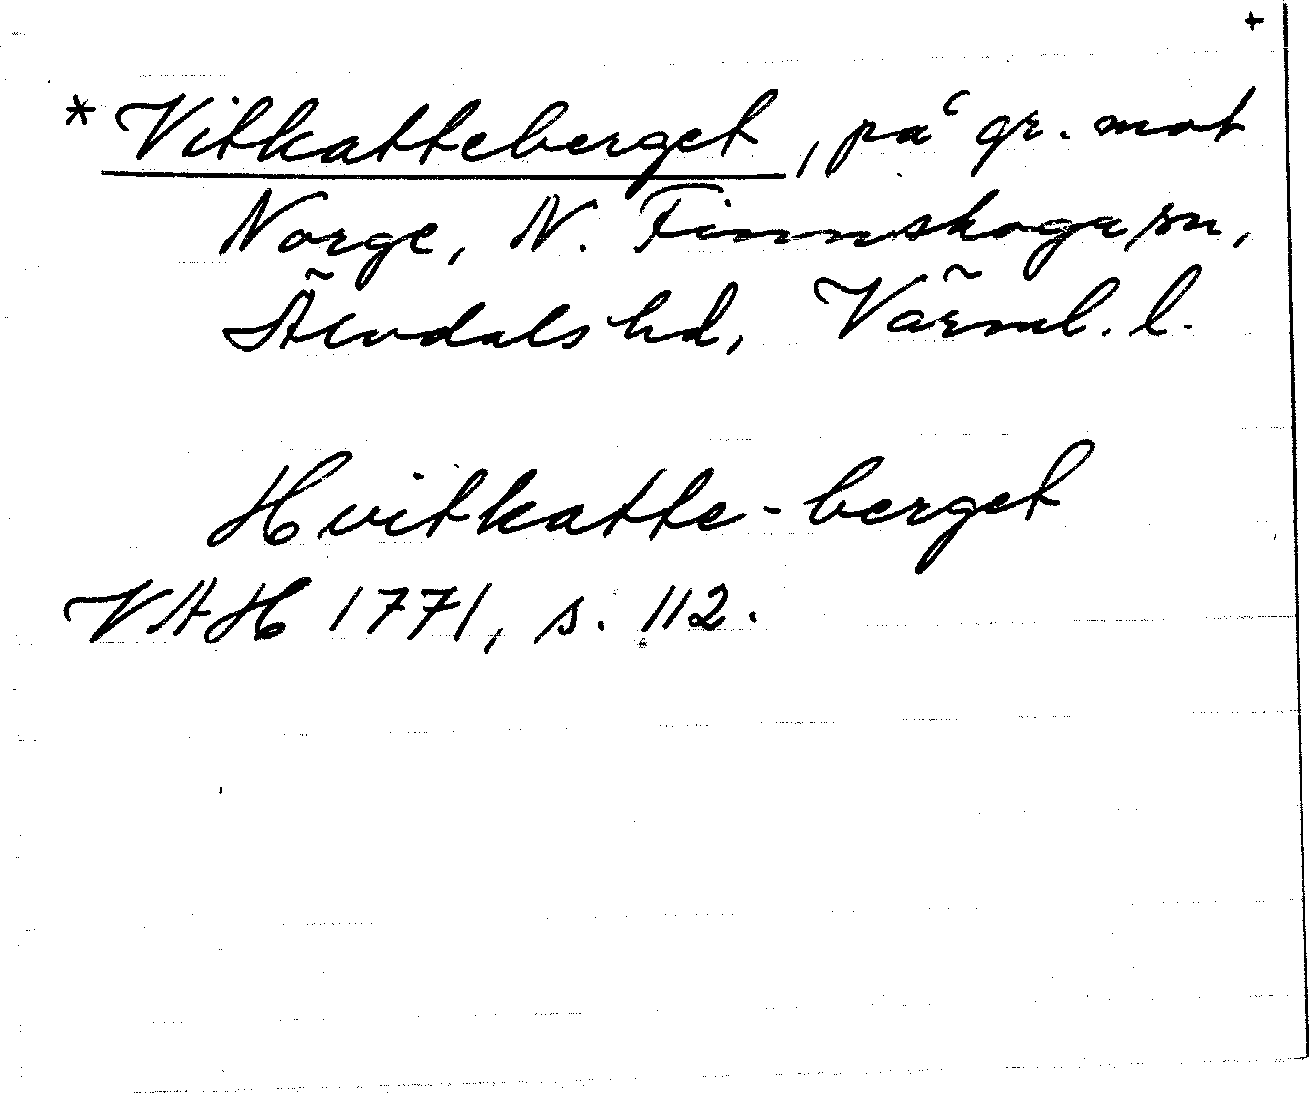 +
* Vitkatteberget, på gr. mot
Norge, N. Finnskoga sn,
Älvdals hd, Värml. l.
Hvitkatte-berget
VAH 1771, s. 112.